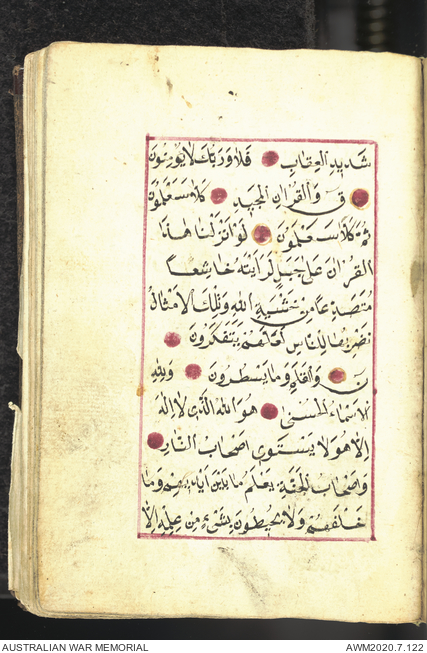 شَدِيدِ العِقَابِ فَلَا وَرَبِّكَ لَا يُؤْمِنُونَ
ق وَالقُرْانِ المَجِيدِ كَلَّا سَتَعْلَمُونَ
ثُمَّ كَلَّا سَتَعْلَمُونَ لَوْ اَنْزَلْنَا هٰذَا
القُرْانَ عَلَى جَبَلٍ لَرَاَيْتَهُ خَاشِعاً
مُتَصَدِّعاً مِنْ خَشْيَةِ اللهِ وَتِلْكَ الاَمْثَالُ
نَضْرِبُهَا لِلنَّاسِ لَعَلَّهُمْ يَتَفَكَّرُونَ
ن وَالقَلَمِ وَمَا يَسْطُرُونَ وَلِلّٰهِ
الاَسْمَاءُ الحُسْنَى هُوَ اللهُ الَّذِى لَا اِلٰهَ
اِلَّا هُوَ لَا يَسْتَوِى اَصْحَابُ النَّارِ
وَاَصْحَابُ الجَنَّةِ يَعْلَمُ مَا بَيْنَ اَيْدِيهِمْ وَمَا
خَلْفَهُمْ وَلَا يُحِيطُونَ بِشَىْءٍ مِنْ عِلْمِهِ اِلَّا
AUSTRALIAN WAR MEMORIAL
AWM2020.7.122